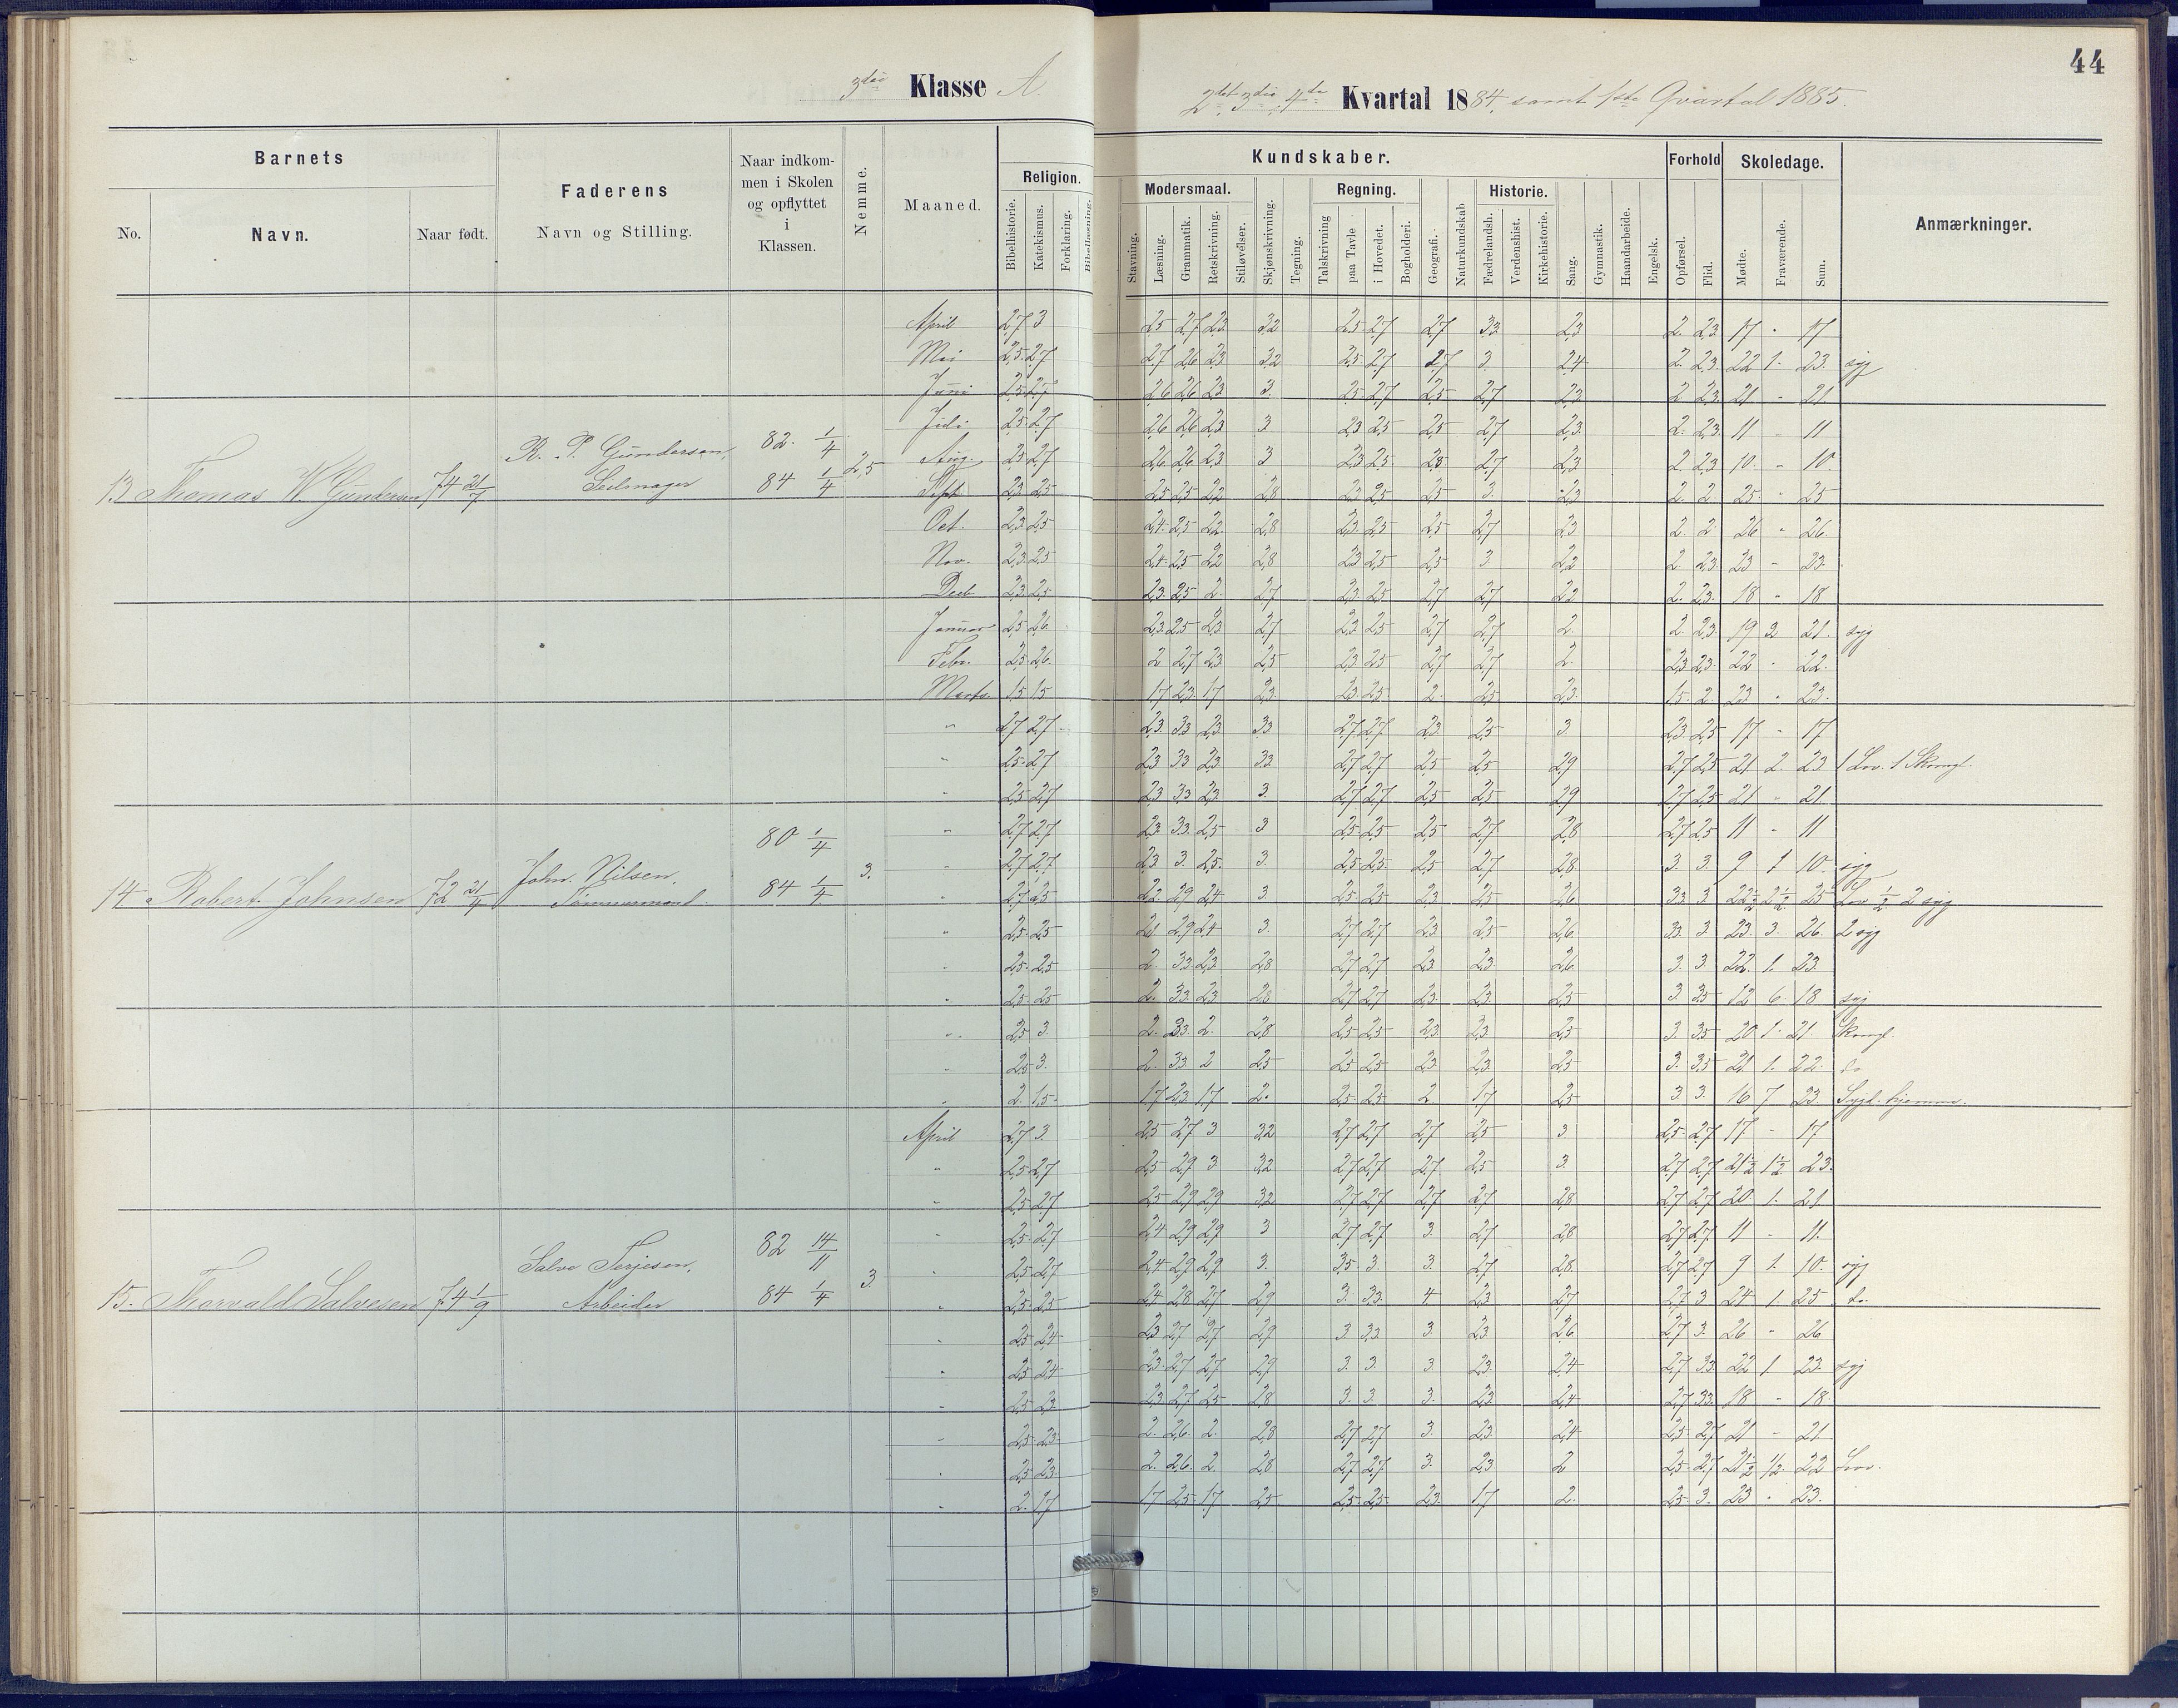 44
3die Klasse A.
2det 3die 4de Kvartal 1884, samt 1ste Qvartal 1885.
Barnets
No.
Navn.
Naar født.
Faderens
Navn og Stilling.
Naar indkom-
men i Skolen
og opflyttet
i
Klassen.
Nemme.
Maaned.
Kundskaber.
Religion.
Bibelhistorie.
Katekismus.
Forklaring.
Bibellæsning.
Modersmaal.
Stavning.
Læsning.
Grammatik.
Retskrivning.
Stiløvelser.
Skjønskrivning.
Tegning.
Regning.
Talskrivning
paa Tavle
i Hovedet.
Bogholderi.
Geografi.
Naturkundskab
Historie.
Fædrelandsh.
Verdenshist.
Kirkehistorie.
Sang.
Gymnastik.
Haandarbeide.
Engelsk.
Forhold
Opførsel.
Flid.
Skoledage.
Mødte.
Fraværende.
Sum.
Anmærkninger.
13 Thomas W. Gundersen 74 21/7 R. P. Gundersen, Seilmager 82. 1/4 84 1/4 2,5
April 2,7 3 2,5 2,7 2,3 3,2 2,5 2,7 2,7 3,3 2,3 2. 2,3 17 - 17
Mai 2,5 2,7 2,7 2,6 2,3 3,2 2,5 2,7 2,7 3. 2,4 2. 2,3 22 1 23. syg
Juni 2,5 2,7 2,6 2,6 2,3 3. 2,5 2,7 2,5 2,7 2,3 2 2,3 21 - 21
Juli 2,5 2,7 2,6 2,6 2,3 3 2,3 2,5 2,5 2,7 2,3 2. 2,3 11 - 11
Aug. 2,5 2,7 2,6 2,6 2,3 3 2,3 2,5 2,3 2,7 2,3 2. 2,3 10 - 10
Sept. 2,3 2,5 2,5 2,5 2,2 2,8 2,3 2,5 2,5 3. 2,3 2. 2. 25 - 25
Oct. 2,3 2,5 2,4 2,5 2,2 2,8 2,3 2,5 2,5 2,7 2,3 2. 2 26 - 26
Nov. 2,3 2,5 2,4 2,5 2,2 2,8 2,3 2,5 2,5 3. 2,2 2. 2,3 23 - 23
Decb 2,3 2,5 2,3 2,5 2. 2,7 2,3 2,5 2,7 2,7 2,2 2. 2,3 18 - 18
Januar 2,5 2,6 2,3 2,5 2,3 2,7 2,3 2,5 2,7 2,7 2. 2. 2,3 19 2 21. syg
Febr. 2,5 2,6 2 2,7 2,3 2,5 2,3 2,5 2,7 2,7 2. 2,3 2,3 22 - 22.
Marts. 1,5 1,5 1,7 2,3 1,7 2,3 2,3 2,5 2. 2,5 2,3 1,5 2. 23 - 23.
14 Robert Johnsen 72 21/4 John. Nilsen, Tømmermand. 80 1/4 84 1/4 3.
" 2,7 2,7 2,3 3,3 2,3 3,3 2,7 2,7 2,3 2,5 3. 2,3 2,5 17 - 17
" 2,5 2,7 2,3 3,3 2,3 3,3 2,7 2,7 2,5 2,5 2,9 2,7 2,5 21 2. 23 1 Lov. 1 Skoegl.
" 2,5 2,7 2,3 3,3 2,3 3. 2,7 2,7 2,5 2,5 2,9 2,7 2,5 21 - 21.
" 2,7 2,7 2,3 3,3 2,5 3 2,5 2,5 2,5 2,7 2,8 2,7 2,5 11 - 11
" 2,7 2,7 2,3 3. 2,5 3. 2,5 2,5 2,5 2,7 2,8 3. 3. 9 1 10. syg
" 2,7 2,5 2,2 2,9 2,4 3 2,5 2,5 2,3 2,5 2,6 3,3 3 22 1/2 2 1/2 25 Lov 1/2 2 syg
" 2,5 2,5 2,1 2,9 2,4 3. 2,7 2,7 2,3 2,5 2,6 3,3 3 23. 3. 26. 2 syg
" 2,5 2,5 2 3,3 2,3 2,8 2,7 2,7 2,3 2,3 2,6 3. 3. 22. 1. 23.
" 2,5 2,5 2. 3,3 2,3 2,8 2,7 2,7 2,3 2,3 2,5 3. 3,5 12 6 18 syg
" 2,5 3. 2. 3,3 2. 2,8 2,5 2,5 2,3 2,3 2,5 3. 3,5 20 1. 21.
" 2,5 3. 2. 3,3 2 2,5 2,5 2,5 2,3 2,3 2,5 3. 3,5 21 1. 22. do
" 2. 1,5 1,7 2,3 1,7 2. 2,5 2,5 2. 1,7 2,5 3 3. 16 7 23. Sygd. hjemme.
15. Thorvald Salvesen 74 1/9 Salve Terjesen, Arbeider 82 14/11 84 1/4 3.
April 2,7 3. 2,5 2,7 3 3,2 2,7 2,7 2,7 2,5 3. 2,5 2,7 17 - 17
" 2,5 2,7 2,5 2,9 3 3,2 2,7 2,7 2,7 2,5 3. 2,7 2,7 21 1/2 1 1/2 23.
" 2,5 2,7 2,5 2,9 2,9 3,2 2,7 2,7 2,7 2,7 2,8 2,7 2,7 20 1. 21
" 2,5 2,7 2,4 2,9 2,9 3 2,7 2,7 3. 2,7 2,8 2,7 2,7 11 - 11.
" 2,5 2,7 2,4 2,9 2,9 3. 3,5 3. 3. 2,7 2,8 2,7 2,7 9 1. 10. syg
" 2,5 2,5 2,4 2,8 2,7 2,9 3. 3,3 4. 2,3 2,7 2,7 3 24 1. 25 do.
" 2,5 2,4 2,3 2,7 2,7 2,9 3. 3,3 3. 2,3 2,6 2,7 3. 26 - 26
" 2,5 2,4 2,3 2,7 2,7 2,9 3. 3. 3 2,3 2,4 2,7 3,3 22 1. 23. syg
" 2,5 2,3 2,3 2,7 2,5 2,8 3. 3. 3. 2,3 2,4 2,7 3,3 18 - 18.
" 2,5 2,3 2. 2,6 2. 2,8 2,7 2,7 3. 2,3 2,4 2,5 2,7 21 - 21
" 2,5 2,3 2. 2,6 2. 2,8 2,7 2,7 3. 2,3 2 2,5 2,7 21 1/2 1/2 22 Lov.
" 2. 1,7 1,7 2,5 1,7 2,5 2,5 2,5 2,3 1,7 2. 2,5 3. 23 - 23.